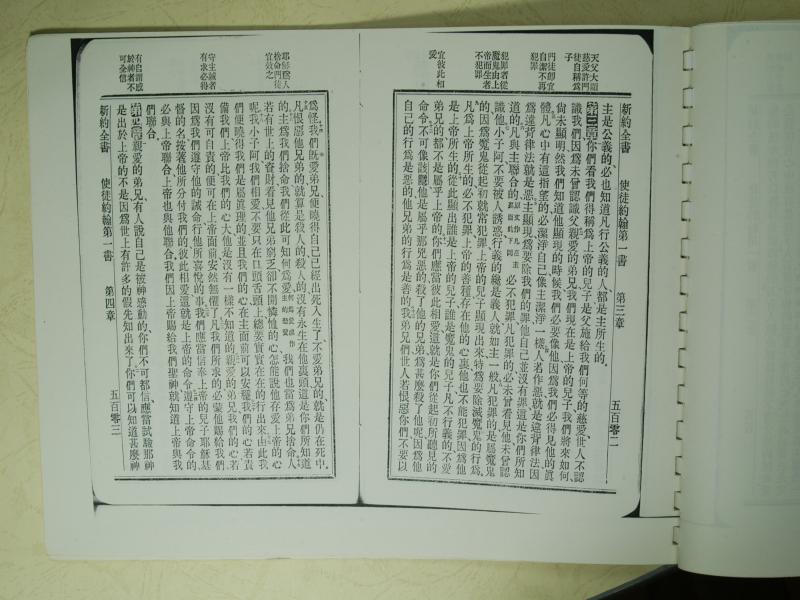 新約全書 使徒約翰第一書 第三章 五百零二
天父大顯慈愛許門徒自稱爲子
門徒卽宜自潔不再犯罪
犯罪者從魔鬼由上帝而生者不犯罪
宜彼此相愛
主是公義的必也知道凡行公義的人都是主所生的
第三章你們看我們得稱爲上帝的兒子是父施給我們何等的慈愛世人不認
識我們因爲未曾認識父親愛的弟兄我們現在是上帝的兒子我們將來如何
尚未顯明然我們知道他顯現的時候我們必要像他因爲我們必得見他的眞
體凡心中有這指望的必潔淨自己像主潔淨一樣人若作惡就是違背律法因
爲違背律法就是惡主顯現爲要除我們的罪他自己並沒有罪是你們所知
道的凡與主聯合的必不犯罪凡犯罪的必未曾看見他未曾認
識他小子阿不要被人誘惑行義的纔是義人就如主一般凡犯罪的是屬魔鬼
的因爲魔鬼從起初就常犯罪上帝的兒子顯現出來特爲要除滅魔鬼的行爲
凡爲上帝所生的必不犯罪上帝的善種存在他的心裏他也不能犯罪因爲他
是上帝所生的從此顯出誰是上帝的兒子誰是魔鬼的兒子凡不行義的不愛
弟兄的都不是屬乎上帝的你們應當彼此相愛這就是你們從起初所聽見的
命令不可像該隱他是屬乎那兇惡的殺了他的兄弟爲甚麼殺了他呢因爲他
自己的行爲是惡的他兄弟的行爲是善的我弟兄們世人若恨惡你們不要以
新約全書 使徒約翰第一書 第四章 五百零三
耶穌爲人捨命門徒宜效之
守主誡者有求必得
有自謂感於神者不可全信
爲怪我們旣愛弟兄便曉得自己已經出死入生了不愛弟兄的就是仍在死中
凡恨惡他兄弟的就算是殺人的殺人的沒有永生在他裏頭這是你們所知道
的主爲我們捨命我們從此可知何爲愛我們也當爲弟兄捨命人
若有世上的資財看見他兄弟窮乏卻不開憐恤的心怎能說他存愛上帝的心
呢我小子阿我們相愛不要只在口頭舌頭上總要實實在在的行出來由此我
們便曉得我們是屬眞理的並且我們的心在主面前可以安穩我們的心若責
備我們上帝比我們的心大他是沒有一樣不知道的親愛的弟兄我們的心若
沒有可自責的便可在上帝面前安然無懼了凡我們所求的必蒙他賜給我們
因爲我們遵守他的誡命行他所喜悅的事我們應當信奉上帝的兒子耶穌基
督的名按著他所分付我們的彼此相愛這就是上帝的命令遵守上帝命令的
必與上帝聯合上帝也與他聯合我們因上帝賜給我們聖神就知道上帝與我
們聯合
第四章親愛的弟兄有人說自己是被神感動的你們不可都信應當試驗那神
是出於上帝的不是因爲世上有許多的假先知出來了你們可以知道甚麼神